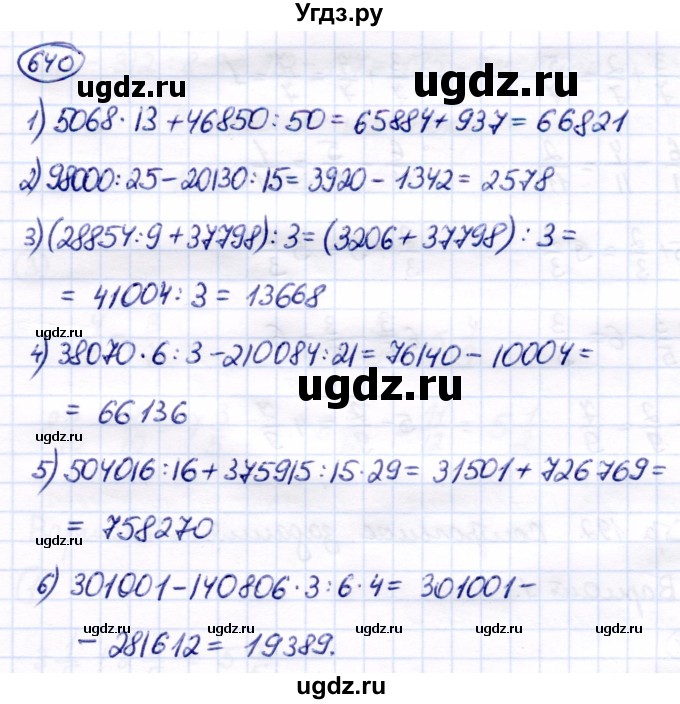 Угдз.ру
640
ugdz.ru
ugdz.ru
1) 5068·13+46850:50=65884+937=66821
2) 98000:25-20130:15=3920-1342=2578
3) (28854:9+37798):3=(3206+37798):3=
=41004:3=13668
ugdz.ru
4) 38070·6:3-210084:21=76140-10004=
ugdz.ru
=66136
5) 504016:16+375915:15·29=31501+726769=
=758270
ugdz.ru
6) 301001-140806·3:6·4=301001-
ugdz.ru ugdz.ru ugdz.ru ugdz.ru
-281612=19389.
ugdz.ru
ugdz.ru